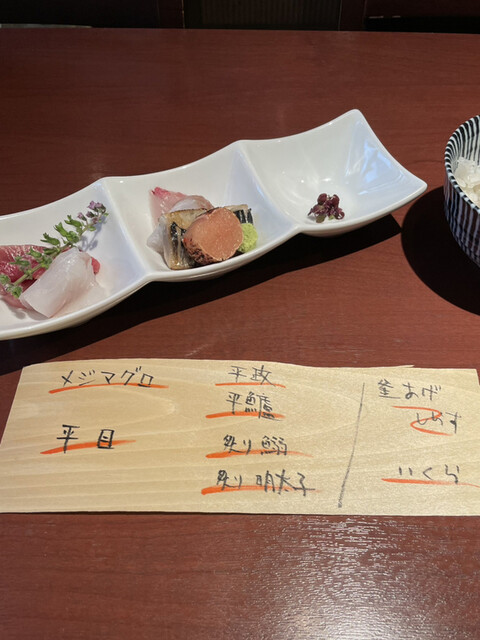 メジマグロ
平目
平政
平鱸
炙り鰯
炙り明太子
釜あげ
しらす
いくら